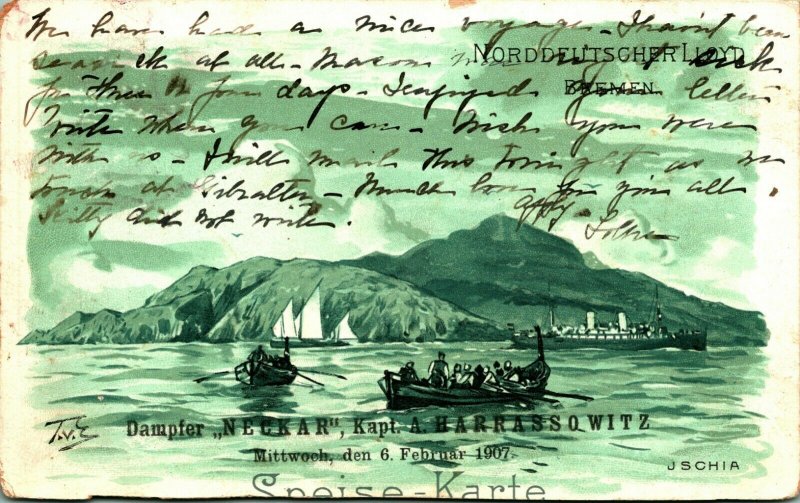 We have had a nice voyage - I havn't been
seasick at all - Mason was sick
for three or four days - I enjoyed your letters
Write when you can - Wish you were
with us - I will mail this tonight as we
touch at Gibraltar - Much love for you all
Kitty did not write.
affly.
NORDDEUTSCHER LLOYD
BREMEN.
Dampfer „NECKAR", Kapt. A. HARRASSOWITZ
Mittwoch, den 6. Februar 1907.
T.v.E
JSCHIA
Speise-Karte